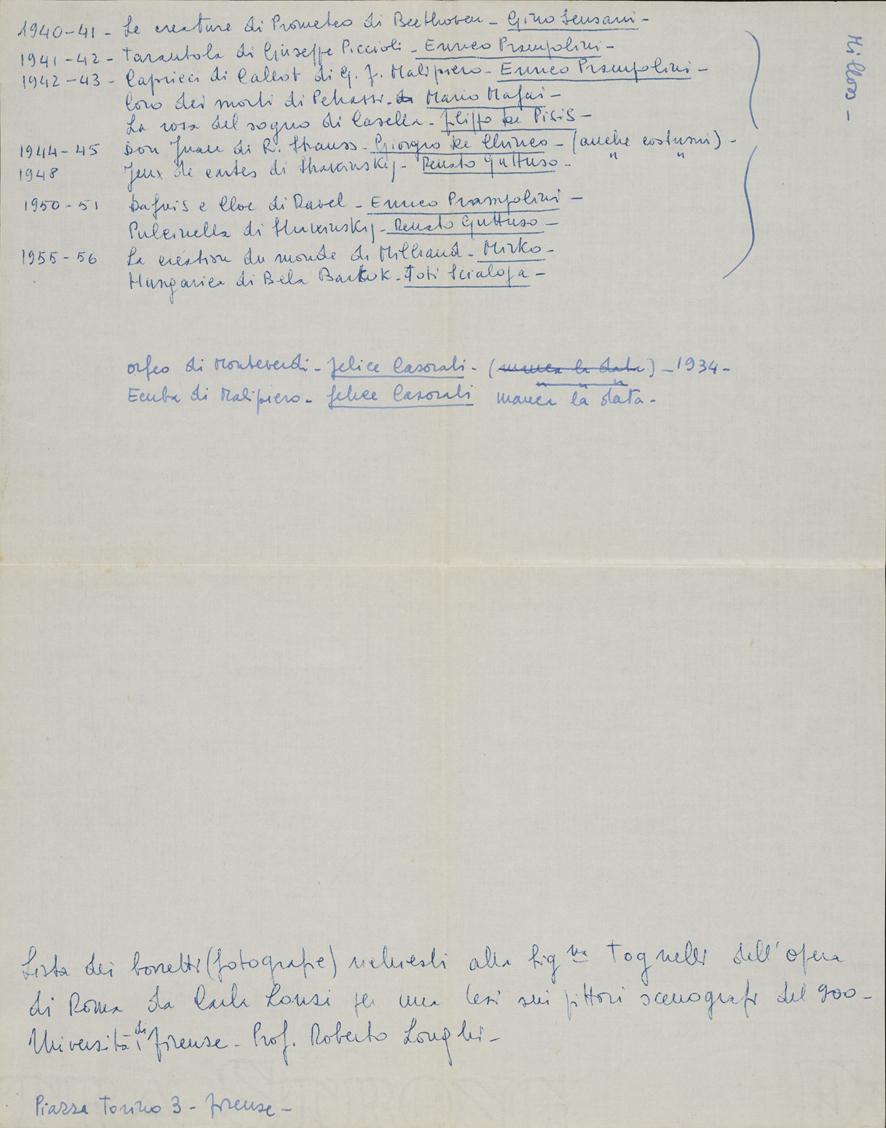 1940-41 - Le creature di Prometeo di Beethoven - Gino Sensani -
1941-42 - Tarantola di Giuseppe Piccioli - Enrico Prampolini -
1942-43 - Capricci di Callot di G. F. Malipiero - Enrico Prampolini -
Coro dei morti di Petrassi - Mario Mafai -
La rosa del sogno di Casella - Filippo De Pisis -
1944-45 Don Juan di R. Strauss - Giorgio De Chirico - (anche costumi) -
1948 Jeux de cartes di Strawinskij - Renato Guttuso - " "
1950-51 Dafnis e Cloe di Ravel - Enrico Prampolini -
Pulcinella di Strawinskij - Renato Guttuso -
1955-56 La création du monde di Milhaud - Mirko -
Hungarica di Bela Bartok - Toti Scialoja -
Milloss -
Orfeo di Monteverdi - Felice Casorati - (manca la data) - 1934 -
Ecuba di Malipiero - Felice Casorati manca la data -
Lista dei bozzetti (fotografie) richiesti alla Sig.na Tognelli dell'Opera
di Roma da Carla Lonzi per una tesi sui pittori scenografi del 900 -
Università di Firenze - Prof. Roberto Longhi -
Piazza Torino 3 - Firenze -